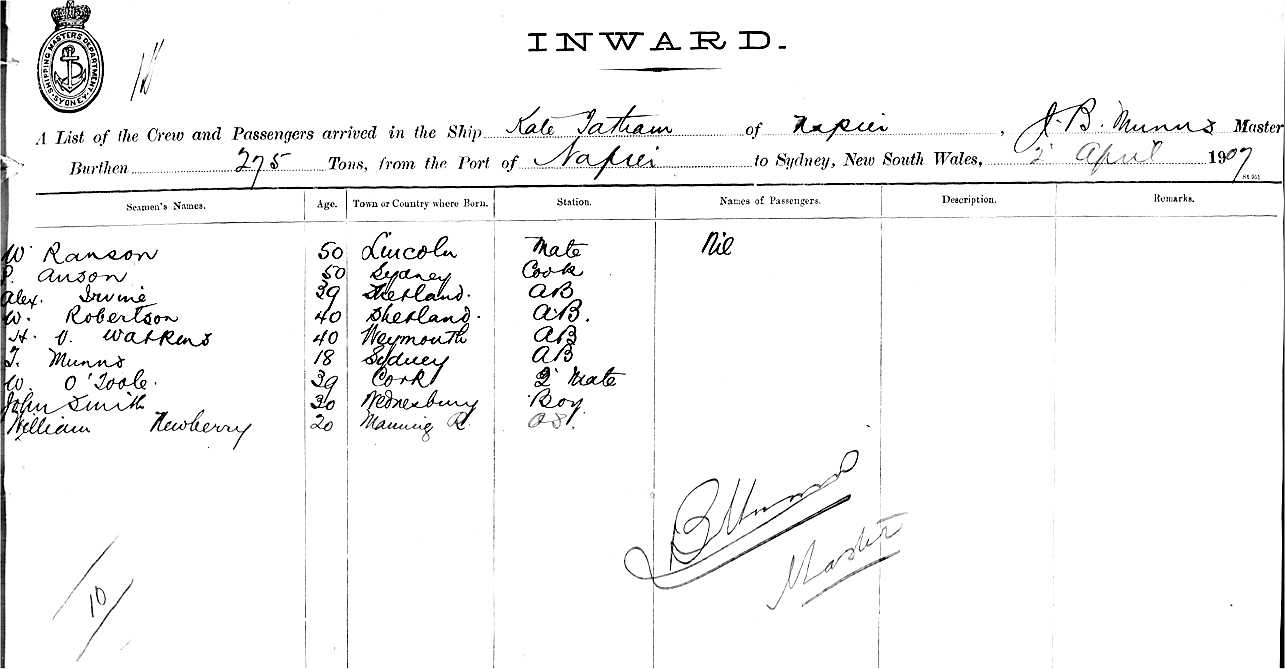 INWARD.
SHIPPING MASTERS DEPARTMENT SYDNEY
A List of the Crew and Passengers arrived in the Ship Kate Tatham of Napier, J. B. Munns Master
Burthen 275 Tons, from the Port of Napier to Sydney, New South Wales, 2 April 1907
Seamen's Names. Age. Town or Country where Born. Station. Names of Passengers. Description. Remarks.
W Ranson 50 Lincoln Mate Nil
P. Anson 50 Sydney Cook
Alex. Irvine 39 Shetland. AB
W. Robertson 40 Shetland. A.B.
H. V. Watkins 40 Weymouth AB
T. Munns 18 Sydney AB
W. O'Toole. 39 Cork 2 Mate
John Smith 30 Wednesbury Boy
William Newberry 20 Manning R. OS.
J B Munns
Master
10